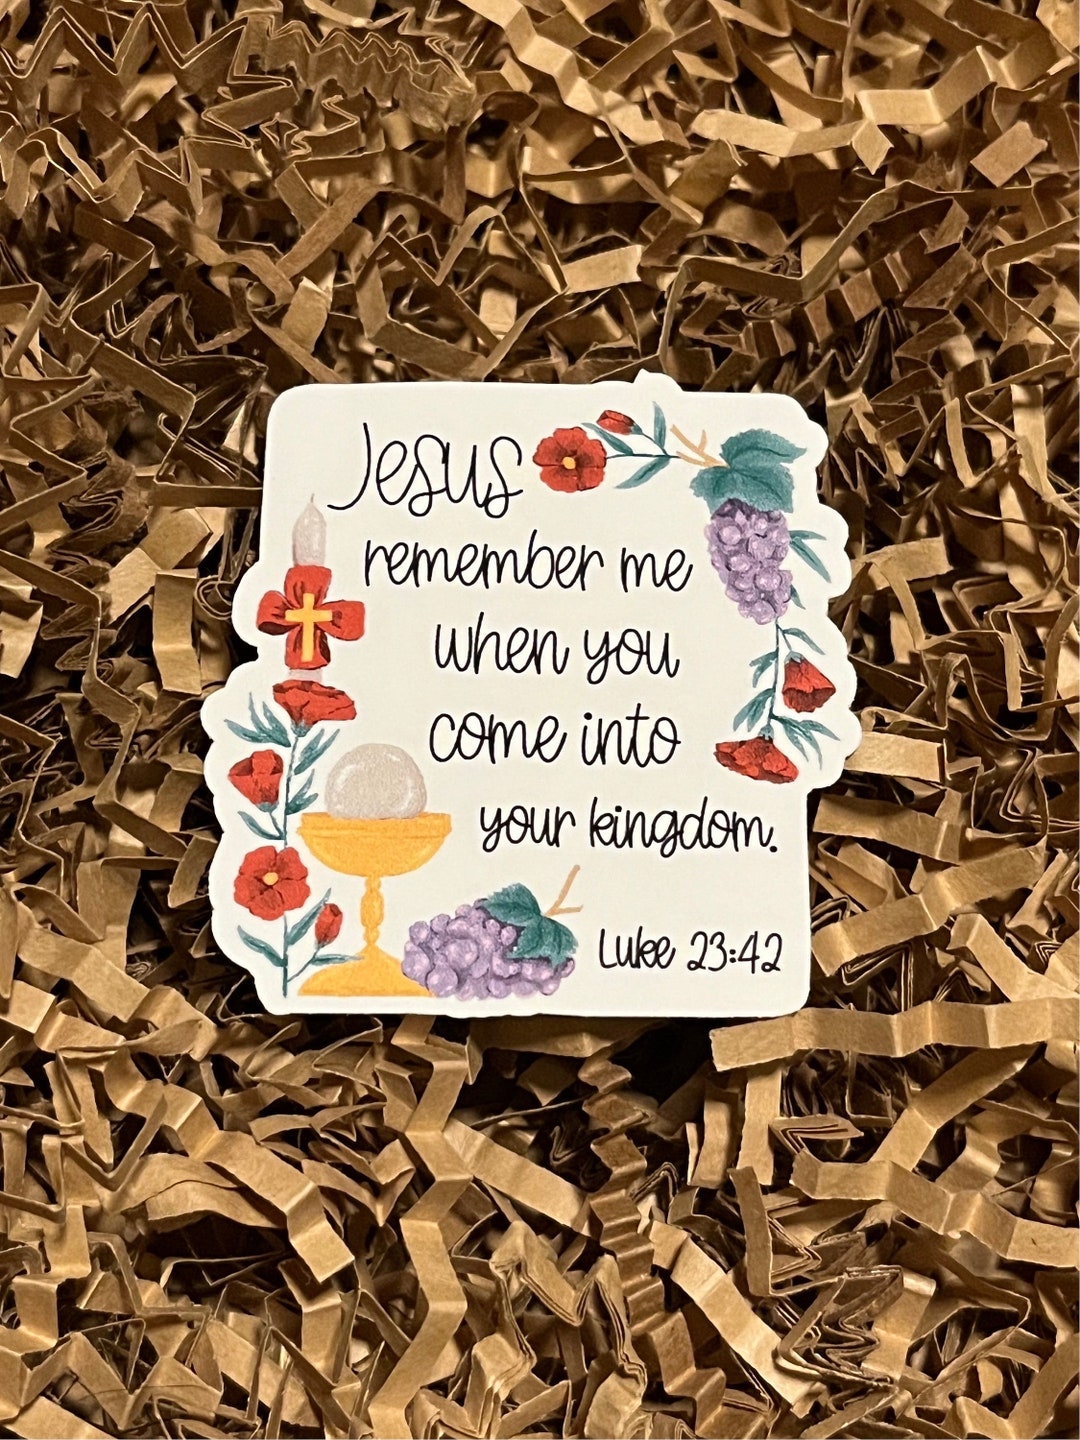 Jesus
remember me
when you
come into
your kingdom.
Luke 23:42